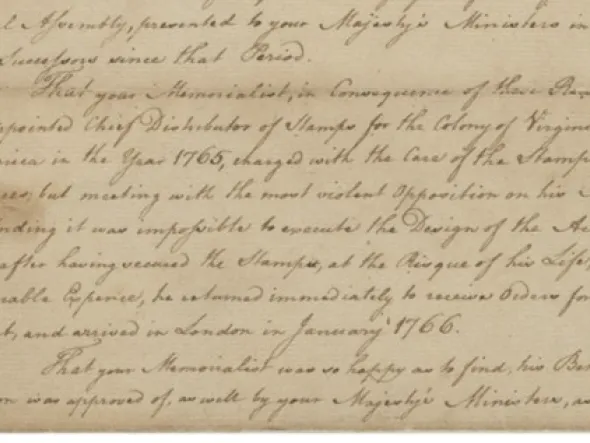 l Assembly, presented to your Majesty's Ministers in
Successors since that Period.
That your Memorialist, in Consequence of these
ppointed Chief Distributor of Stamps for the Colony of Virgin
rica in the Year 1765, charged with the Care of the Stamp
but meeting with the most violent Opposition on his
nding it was impossible to execute the Design of the Ac
after having secured the Stamps, at the Risque of his Life,
rable Expence, he returned immediately to receive Orders for
t, and arrived in London in January 1766.
That your Memorialist was so happy as to find, his Be
on was approved of, as well by your Majesty's Ministers, as